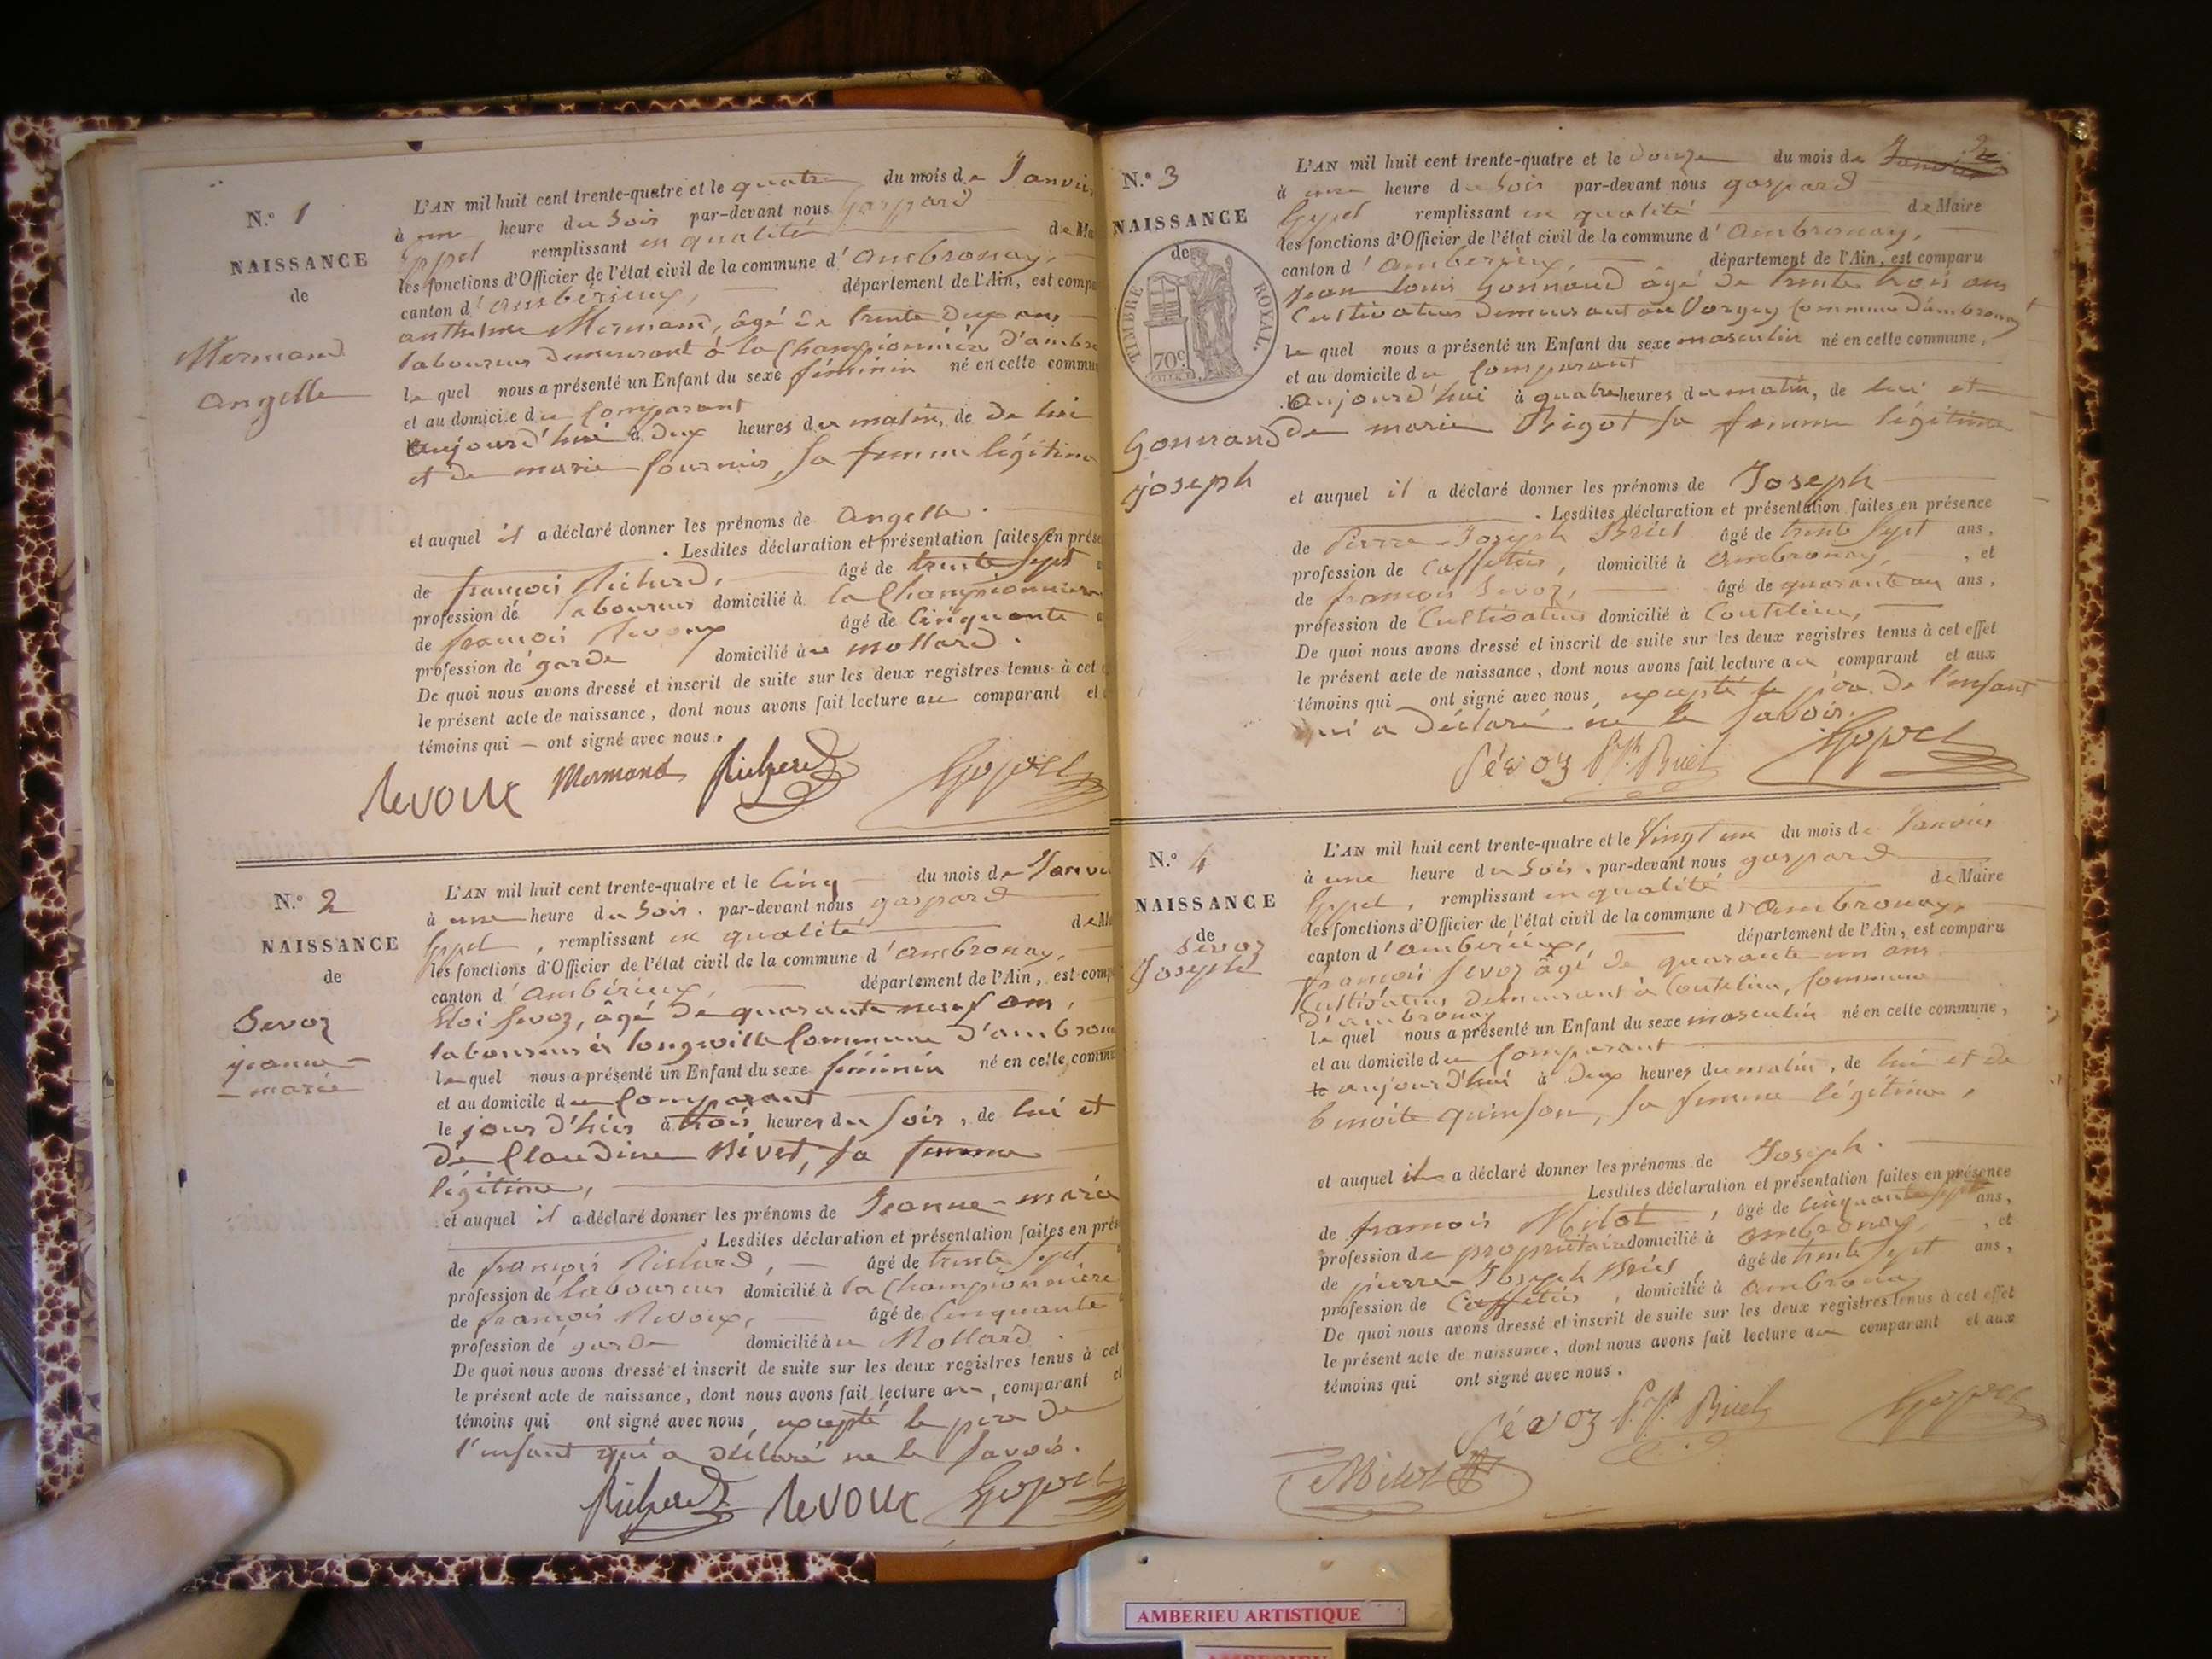 N.° 1
NAISSANCE
de
Mermand
angelle
L'AN mil huit cent trente-quatre et le quatre du mois de Janvier
à une heure du soir par-devant nous gaspard
remplissant en qualité de Ma
les fonctions d'Officier de l'état civil de la commune d'ambronay,
canton d'ambérieux, département de l'Ain, est compa
anthelme Mermand, âgé de trente deux ans
laboureur demeurant à la Championnière d'ambro
lequel nous a présenté un Enfant du sexe féminin né en cette commun
et au domicile du Comparant
aujourd'hui à deux heures du matin, de De lui
et de marie fournier, sa femme légitime
et auquel il a déclaré donner les prénoms de angelle.
. Lesdites déclaration et présentation faites en prése
de françois Richerd, âgé de trente sept
profession de laboureur domicilié à la Championnière
de françois Revoux âgé de Cinquante
profession de garde domicilié au mollard.
De quoi nous avons dressé et inscrit de suite sur les deux registres tenus à cet
le présent acte de naissance, dont nous avons fait lecture au comparant et
témoins qui — ont signé avec nous.
Revoux Mermand Richerd
N.° 2
NAISSANCE
de
Sevoz
jeanne-
marie
L'AN mil huit cent trente-quatre et le Cinq du mois de Janvie
à une heure du soir. par-devant nous gaspard
, remplissant en qualité de Ma
les fonctions d'Officier de l'état civil de la commune d'ambronay,
canton d'ambérieux, département de l'Ain, est comp
Eloi Sevoz, âgé de quarante neuf ans,
laboureur à longeville Commune d'ambrona
lequel nous a présenté un Enfant du sexe féminin né en cette commu
et au domicile du Comparant
le jour d'hier à trois heures du soir, de lui et
de Claudine Rivet, sa femme
légitime,
et auquel il a déclaré donner les prénoms de Jeanne-marie
. Lesdites déclaration et présentation faites en prés
de françois Richerd, âgé de trente sept
profession de laboureur domicilié à la Championnière
de françois Revoux, âgé de Cinquante
profession de garde domicilié au Mollard
De quoi nous avons dressé et inscrit de suite sur les deux registres tenus à cet
le présent acte de naissance, dont nous avons fait lecture au, comparant et
témoins qui ont signé avec nous, excepté le père de
l'enfant qui a déclaré ne le savoir.
Richerd Revoux
N.° 3
NAISSANCE
de
TIMBRE ROYAL.
70c.
Gonnand
joseph
L'AN mil huit cent trente-quatre et le Douze du mois de Janvier
à une heure du soir par-devant nous gaspard
remplissant en qualité de Maire
les fonctions d'Officier de l'état civil de la commune d'ambronay,
canton d'ambérieux, département de l'Ain, est comparu
Jean Louis Gonnand âgé de trente trois ans
Cultivateur demeurant au Vorgey Commune d'ambronay
lequel nous a présenté un Enfant du sexe masculin né en cette commune,
et au domicile du Comparant
aujourd'hui à quatre heures du matin, de lui et
de marie Bigot sa femme légitime
et auquel il a déclaré donner les prénoms de Joseph
. Lesdites déclaration et présentation faites en présence
de Pierre-Joseph âgé de trente sept ans,
profession de Caffetier, domicilié à ambronay, , et
de françois Sevoz, âgé de quarante un ans,
profession de Cultivateur domicilié à Coutelieu,
De quoi nous avons dressé et inscrit de suite sur les deux registres tenus à cet effet
le présent acte de naissance, dont nous avons fait lecture au comparant et aux
témoins qui ont signé avec nous, excepté le père de l'enfant
qui a déclaré ne le savoir.
Sévoz
N.° 4
NAISSANCE
de
Sevoz
Joseph
L'AN mil huit cent trente-quatre et le Vingt un du mois de Janvier
à une heure du soir. par-devant nous gaspard
, remplissant en qualité de Maire
les fonctions d'Officier de l'état civil de la commune d'ambronay,
canton d'ambérieux, département de l'Ain, est comparu
françois Sevoz âgé de quarante un ans
Cultivateur demeurant à Coutelieu, Commune
d'ambronay
lequel nous a présenté un Enfant du sexe masculin né en cette commune,
et au domicile du Comparant
le aujourd'hui à deux heures du matin, de lui et de
benoite quinson, sa femme légitime,
et auquel il a déclaré donner les prénoms de Joseph.
Lesdites déclaration et présentation faites en présence
de françois Milot, âgé de cinquante sept ans,
profession de propriétaire domicilié à ambronay , et
de pierre-Joseph âgé de trente sept ans,
profession de Caffetier, domicilié à ambronay
De quoi nous avons dressé et inscrit de suite sur les deux registres tenus à cet effet
le présent acte de naissance, dont nous avons fait lecture au comparant et aux
témoins qui ont signé avec nous.
Sévoz
Milot
AMBERIEU ARTISTIQUE